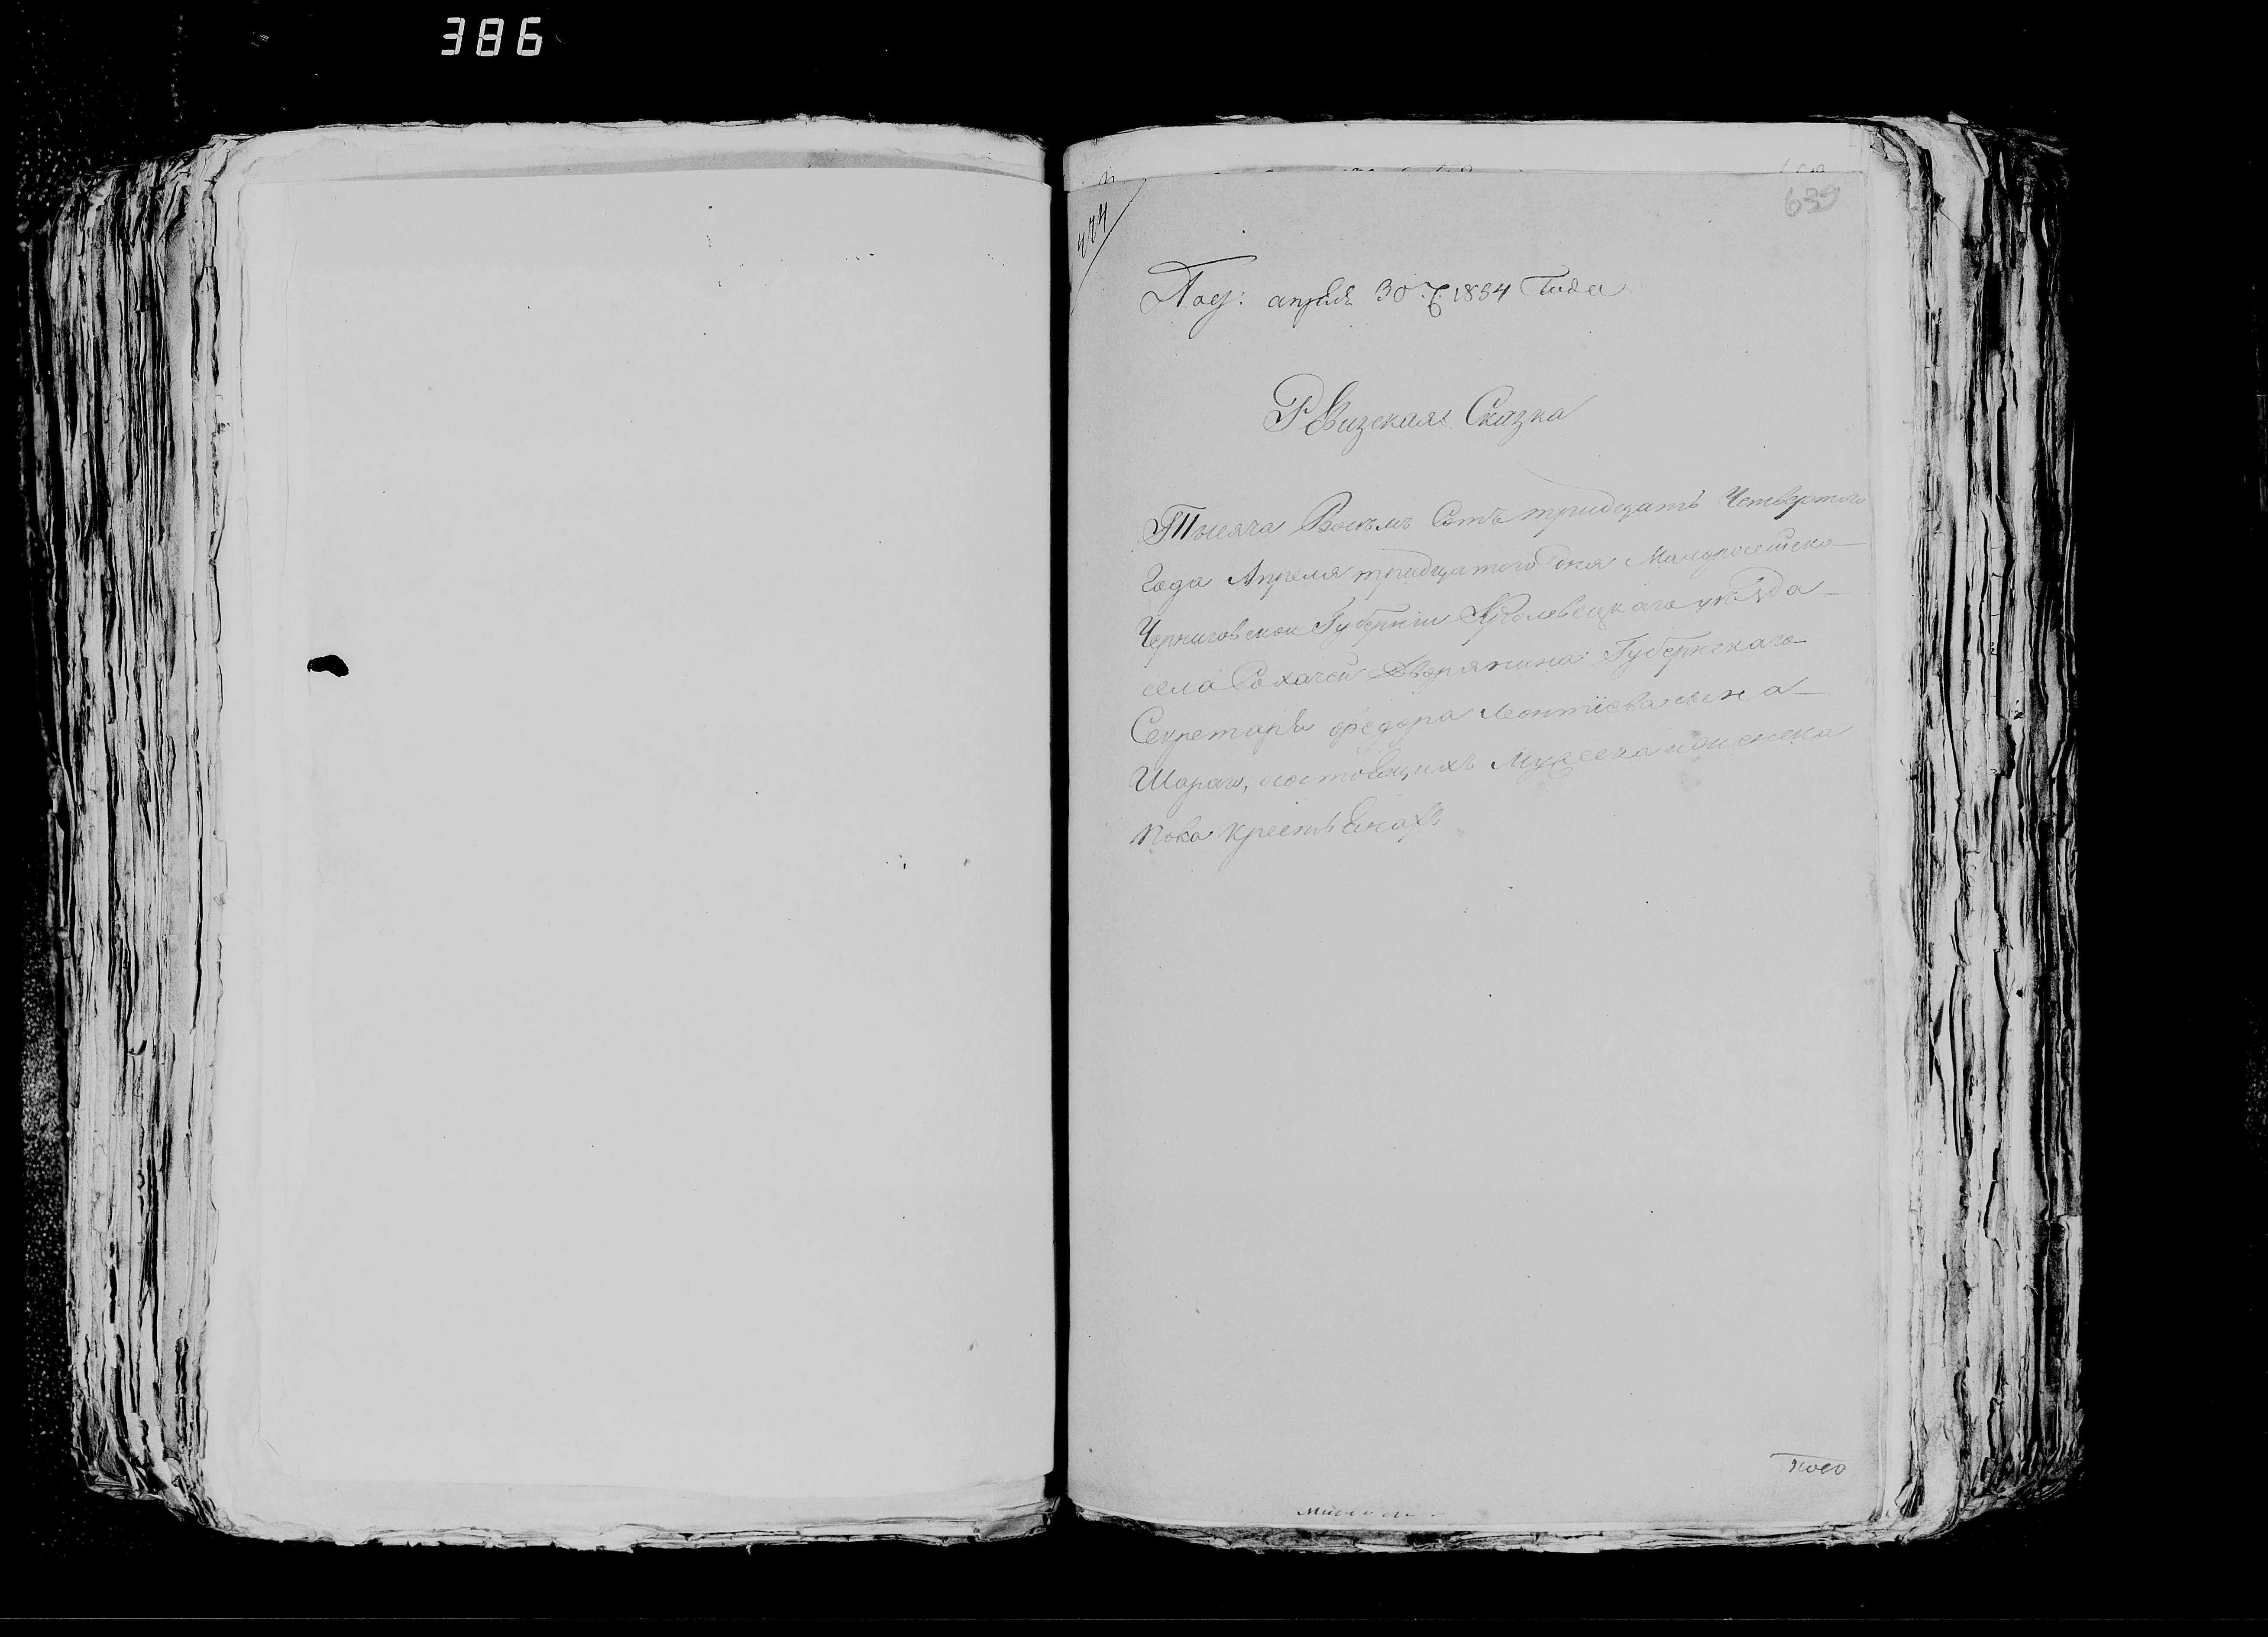 386
639
474
Под: апреля 30 1834 Года
Ревизская Сказка
Тысяча Восемъ Сотъ тридцать Четвертого
Года Апреля тридцатого дня Малоросейско
Черниговской Губернии Кролевецкаго уѣзда
села Сохачей Дворянина Губернскаго
Секретаря федора Леонтиева сына
Шораго, состоящихъ Мужеска и женска
пола крестьянахъ